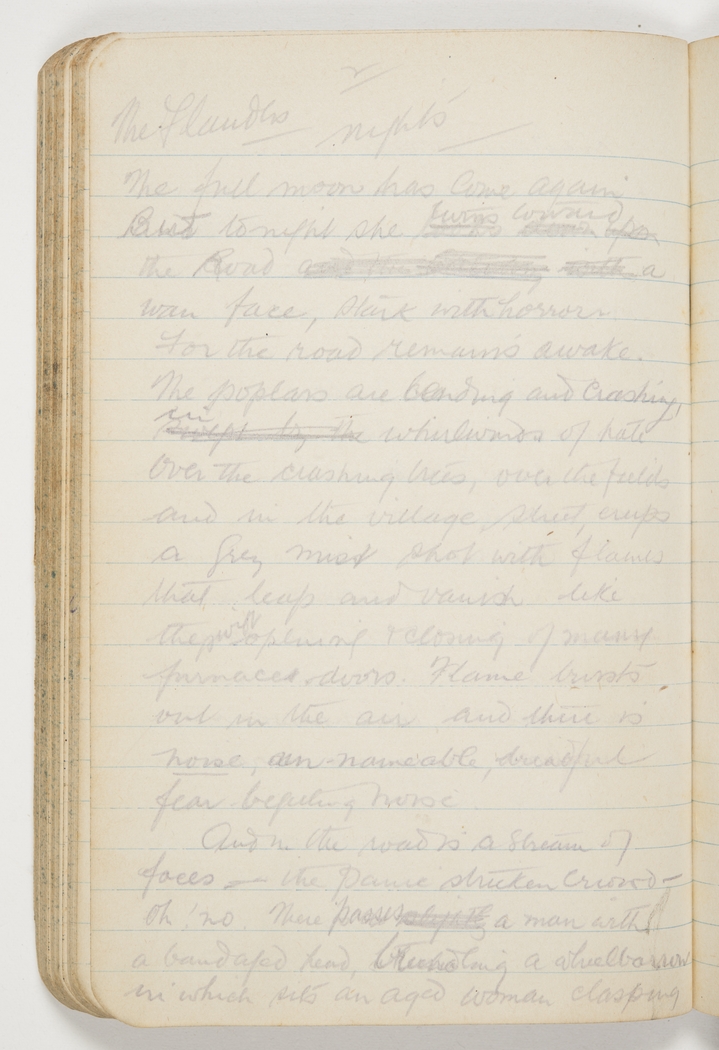 The Flanders nights
The full moon has come again
But tonight she turns toward
the Road a
wan face, stark with horror
For the road remains awake.
The poplars are bending and crashing,
in whirlwinds of hate
Over the crashing trees, over the fields
and in the village street, creeps
a Grey mist shot with flames
that leap and vanish like
the swift opening & closing of many
furnace doors. Flame bursts
out in the air and there is
noise, un-nameable, dreadful
fear-begetting noise
And in the road is a stream of
faces — the panic stricken crowd —
Oh! no. There passes a man with
a bandaged head, wheeling a wheelbarrow
in which sits an aged woman clasping